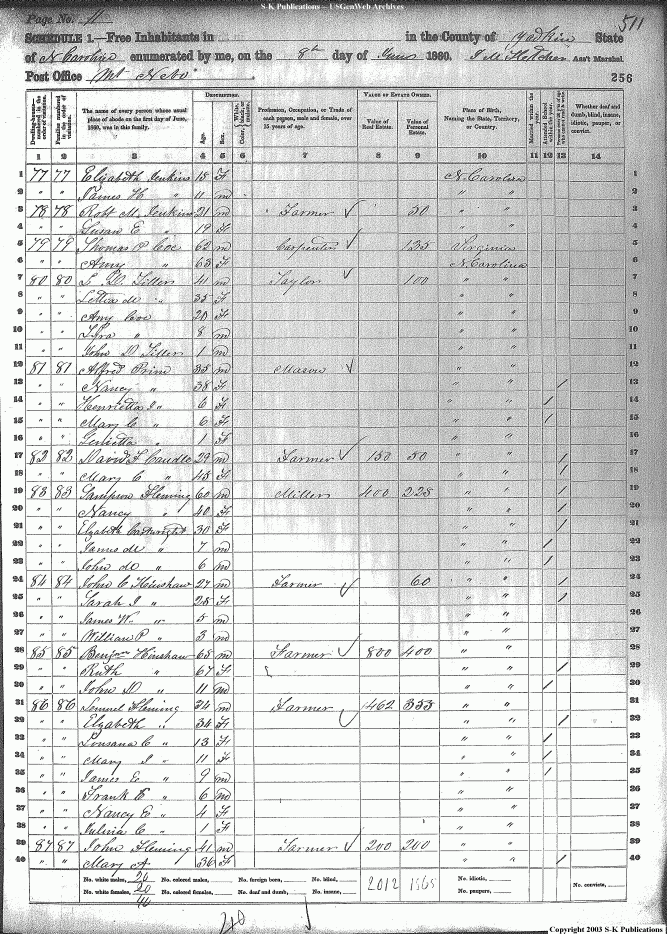 S-K Publications -- USGenWeb Archives
Page No. 11
511
SCHEDULE 1.—Free Inhabitants in in the County of Yadkin State
of N Carolina enumerated by me, on the 8th day of June 1860. Ass't Marshal
Post Office Mt Nebo.
256
Dwelling-houses—numbered in the order of visitation.
Families numbered in the order of visitation.
The name of every person whose usual place of abode on the first day of June, 1860, was in this family.
DESCRIPTION.
Age.
Sex.
Color,
Profession, Occupation, or Trade of each person, male and female, over 15 years of age.
VALUE OF ESTATE OWNED.
Value of Real Estate.
Value of Personal Estate.
Place of Birth, Naming the State, Territory, or Country.
Married within the year.
Attended School within the year.
Whether deaf and dumb, blind, insane, idiotic, pauper, or convict.
1 2 3 4 5 6 7 8 9 10 11 12 13 14
1 77 77 Elizabeth Jenkins 18 F N. Carolina 1
2 " " James H " 11 m " " 2
3 78 78 Robt M. Jenkins 21 m Farmer 50 " " 3
4 " " Susan E " 19 F " " 4
5 79 79 Thomas P Coe 62 m Carpenter 135 Virginia 5
6 " " Amy " 63 F N. Carolina 6
7 80 80 41 m Taylor 100 " " 7
8 " " 35 F " " 8
9 " " Amy Coe 20 F " " 9
10 " " 8 m " " 10
11 " " John D 1 m " " 11
12 81 81 Alfred Prim 35 m Mason " " 12
13 " " Nancy " 38 F " " / 13
14 " " Henrietta J " 6 F " " / 14
15 " " Mary C " 6 F " " / 15
16 " " " 1 F " " 16
17 82 82 David F Caudle 29 m Farmer 150 50 " " / 17
18 " " Mary C " 45 F " " / 18
19 83 83 Sampson Fleming 60 m Millers 400 225 " " / 19
20 " " Nancy " 40 F " " / 20
21 " " Elizabeth Cartwright 30 F " " / 21
22 " " James M " 7 m " " / 22
23 " " John " 6 m " " / 23
24 84 84 John C Hinshaw 27 m Farmer 60 " " / 24
25 " " Sarah J " 25 F " " / 25
26 " " James W. " 5 m " " 26
27 " " William P " 3 m " " 27
28 85 85 Benjn Hinshaw 65 m Farmer 800 400 " " 28
29 " " Ruth " 67 F " " / 29
30 " " John D " 11 m " " / 30
31 86 86 Samuel Fleming 34 m Farmer 462 353 " " 31
32 " " Elizabeth " 34 F " " / 32
33 " " Lousana C " 13 F " " / 33
34 " " Mary J " 11 F " " / 34
35 " " James E " 9 m " " / 35
36 " " Frank E " 6 m " " 36
37 " " Nancy E " 4 F " " 37
38 " " C " 1 F " " 38
39 87 87 John Fleming 41 m Farmer 200 200 " " 39
40 " " Mary A. 36 F " " / 40
No. white males, 20 No. colored males, No. foreign born, No. blind, 2012 No. idiotic, No. convicts,
No. white females, 20 No. colored females, No. deaf and dumb, No. insane, No. paupers,
40
Copyright 2003 S-K Publications